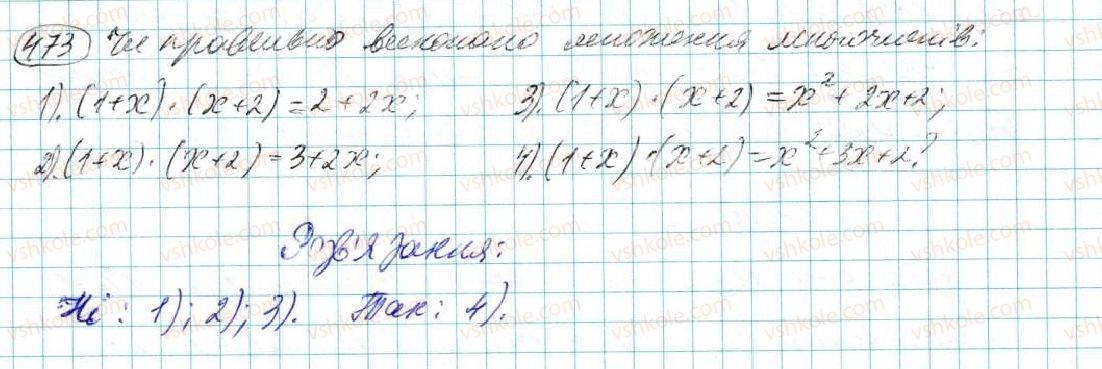 473 Чи правильно виконано множення многочленів:
1). (1+x)·(x+2)=2+2x; 3). (1+x)·(x+2)=x²+2x+2;
2). (1+x)·(x+2)=3+2x; 4). (1+x)·(x+2)=x²+3x+2?
Розв'язання:
Ні: 1); 2); 3). Так: 4).